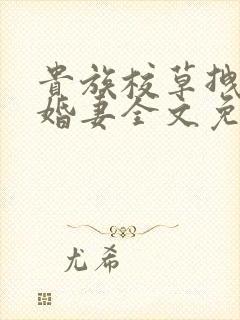 贵族校草拽
婚妻全文免
尤希